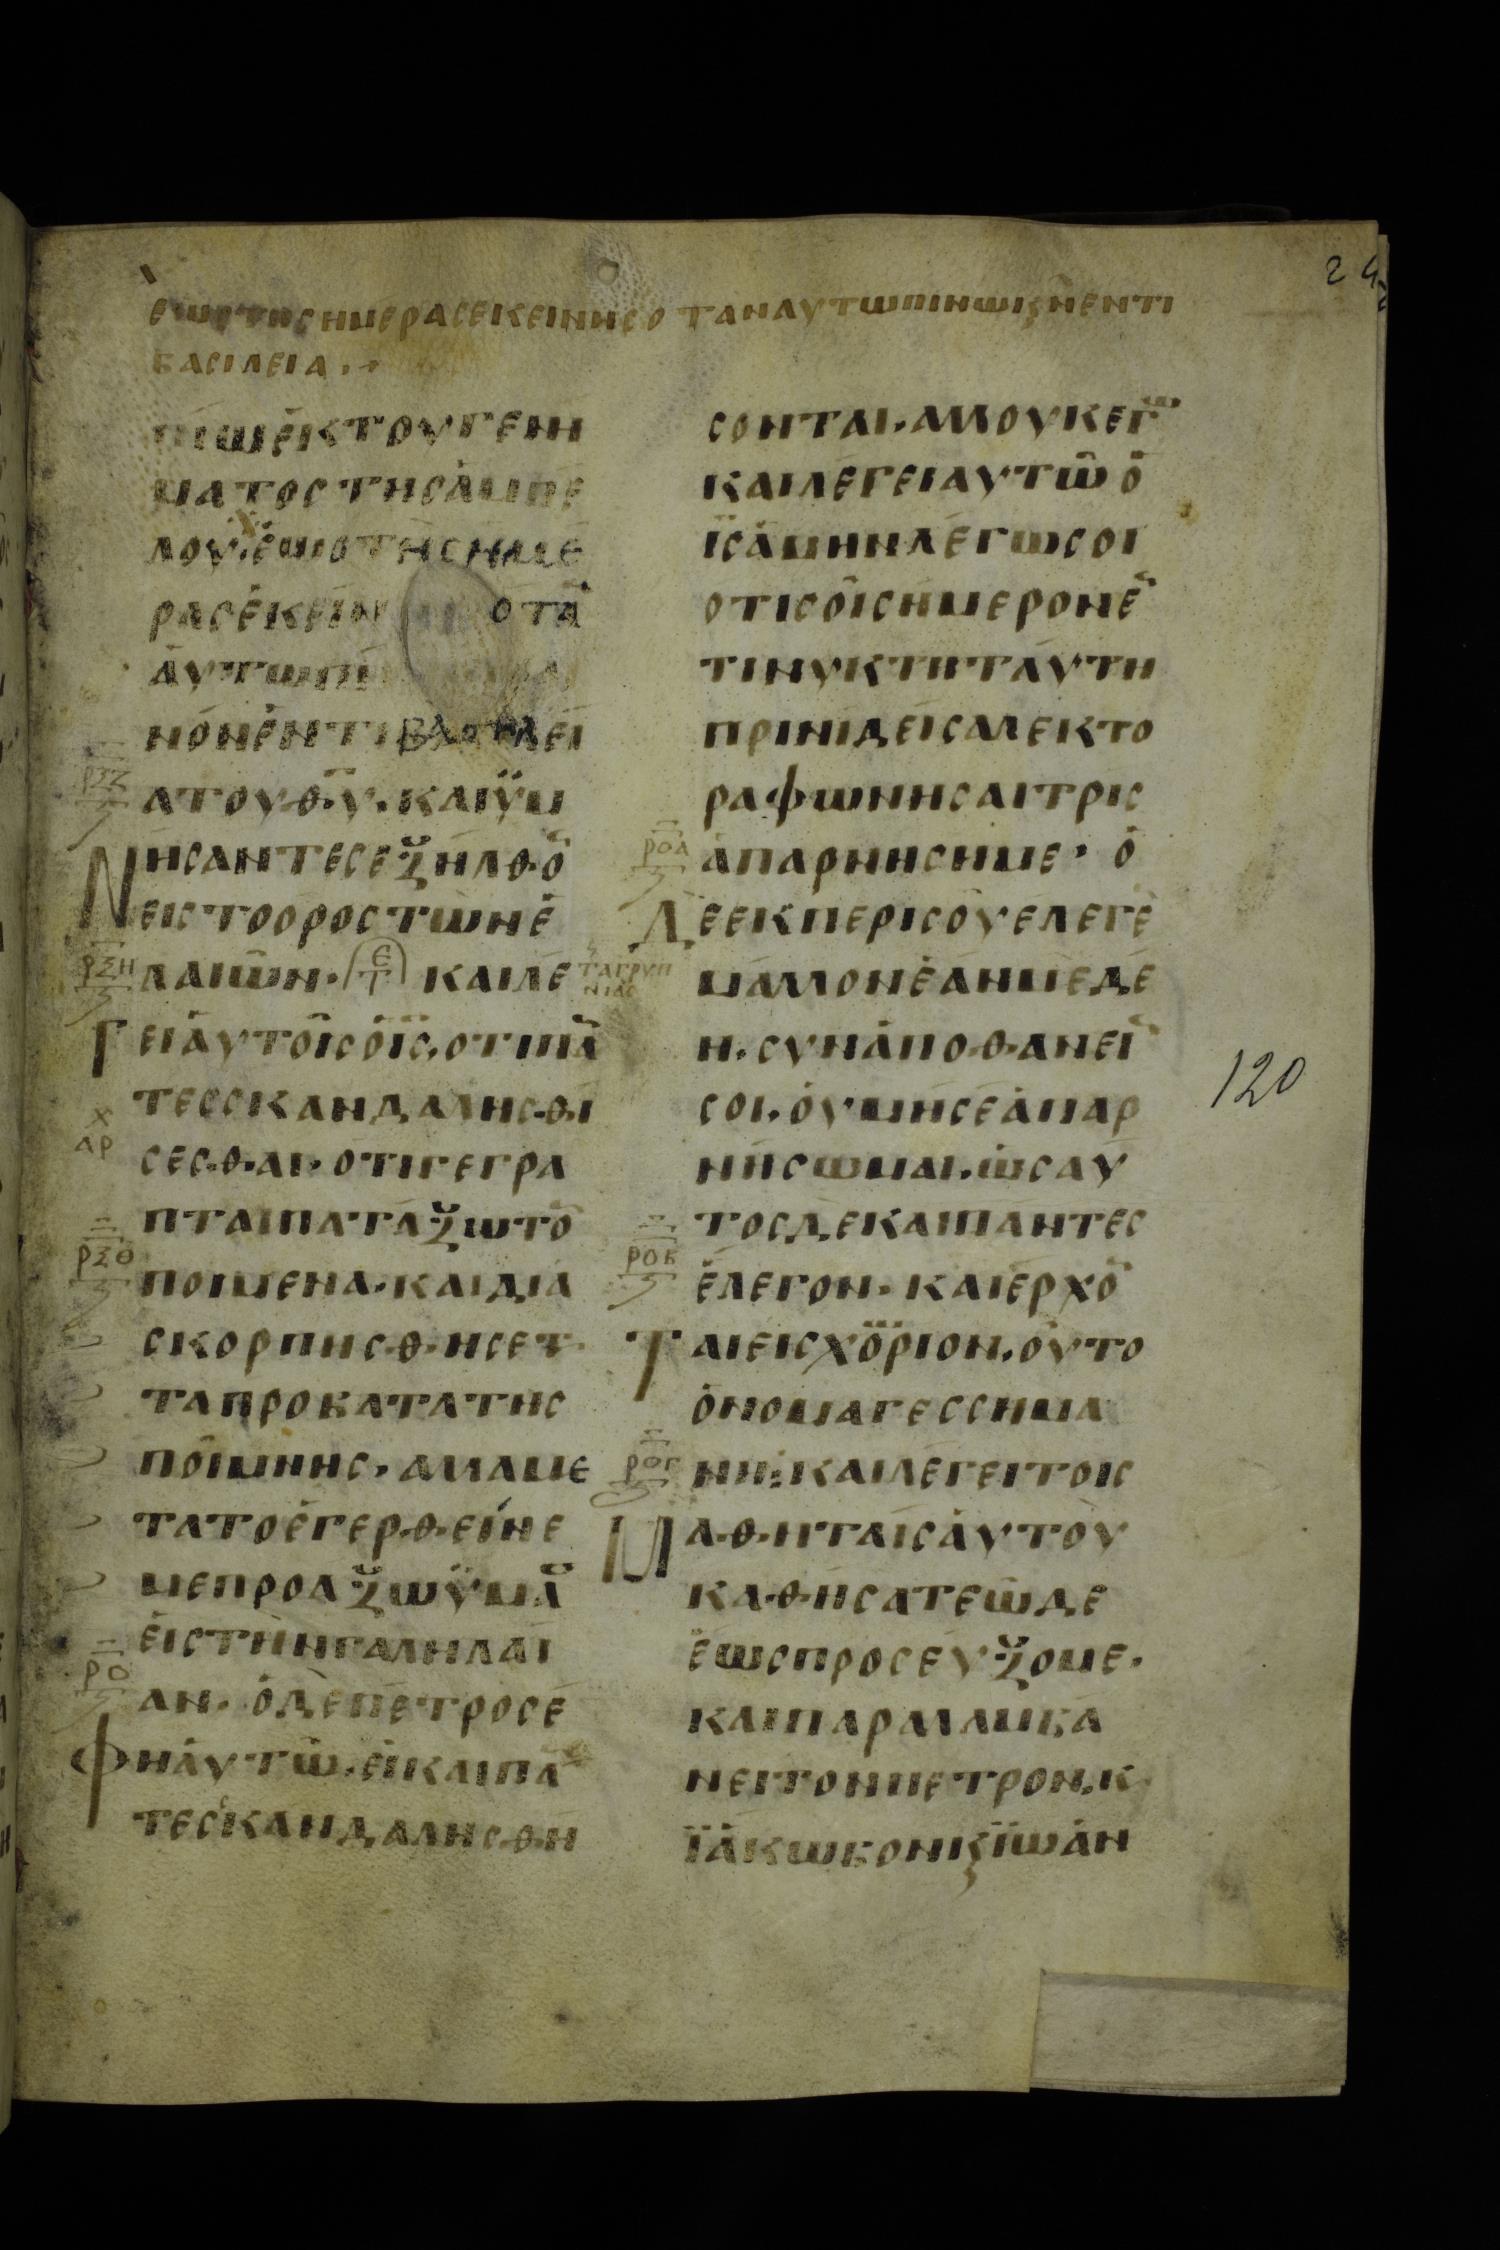 24
ΕΩΣΤΗΣΗΜΕΡΑΣΕΚΕΙΝΗΣΟΤΑΝΑΥΤΩΠΙΝΩΚϚΝΕΝΤΙ
ΒΑΣΙΛΕΙΑ.
ΠΙΩἘΚΤΟΥΓΕΝΗ
ΜΑΤΟΣΤΗΣἈΜΠΕ
ΛΟΥ.ἙΩΣΤΗΣΗΜΕ
ΡΑΣἘΚΕΙΝ ΟΤᾹ
ἈΥΤΩΠΙ
ΝΟΝἘΝΤΙΒΑΣΙΛΕΙ
ΑΤΟΥΘ̄Ῡ.ΚΑΙΫΜ
ΝΗΣΑΝΤΕΣΕΞΗΛΘΟ̄
ΕΙΣΤΟΟΡΟΣΤΩΝἘ
ΛΑΙΩ͂Ν. ΕΤ ΚΑΙΛΕ
ΓΕΙἈΥΤΟΙΣὉῙΣ̄.ΟΤΙΠᾹ
ΤΕΣΣΚΑΝΔΑΛΗΣΘΙ
ΣΕΣΘΑΙ.ΟΤΙΓΕΓΡΑ
ΠΤΑΙΠΑΤΑΞΩΤΟ̄
ΠΟΙΜΕΝΑ.ΚΑΙΔΙΑ
ΣΚΟΡΠΗΣΘΗΣΕΤ
ΤΑΠΡΟΒΑΤΑΤΗΣ
ΠΟΙΜΝΗΣ.ΑΛΛΑΜΕ
ΤΑΤΟἘΓΕΡΘΕΙΝΕ
ΜΕΠΡΟΑΞΩΫΜᾹ
ἘΙΣΤΗΝΓΑΛΗΛΑΙ
ΑΝ.ὉΔΕΠΕΤΡΟΣΕ
ΦΗἈΥΤΩ.ΕἸΚΑΙΠᾹ
ΤΕΣΚΑΝΔΑΛΗΣΘΗ
ΣΟΝΤΑΙ.ΑΛΛΟΥΚΕΓ
ΚΑΙΛΕΓΕΙΑΥΤΩ͂Ὁ
ῙΣ̄ἈΜΗΝΛΕΓΩΣΟΙ
ΟΤΙΣΟΙΣΗΜΕΡΟΝΕ̄
ΤΙΝΥΚΤΗΤΑΥΤΗ
ΠΡΙΝΙΔΕΙΣΑΛΕΚΤΟ
ΡΑΦΩΝΗΣΑΙΤΡΙΣ
ἈΠΑΡΝΗΣΗΜΕ. Ὁ
ΔΕΕΚΠΕΡΙΣΟΥΕΛΕΓΕ
ΜΑΛΛΟΝἘΑΝΜΕΔΕ
Η.ΣΥΝἈΠΟΘΑΝΕῙ
ΣΟΙ.ὈΥΜΗΣΕἈΠΑΡ
ΝΗΣΩΜΑΙ.ὩΣΑΥ
ΤΟΣΔΕΚΑΙΠΑΝΤΕΣ
ἘΛΕΓΟΝ.ΚΑΙΕΡΧΟ̄
ΤΑΙΕΙΣΧΟΡΙΟΝ.ΟΥΤΟ
ὈΝΟΜΑΓΕΣΣΗΜΑ
ΝΗ:ΚΑΙΛΕΓΕΙΤΟΙΣ
ΜΑΘΗΤΑΙΣἈΥΤΟΥ
ΚΑΘΗΣΑΤΕΩΔΕ
ἘΩΣΠΡΟΣΕΥΞΟΜΕ.
ΚΑΙΠΑΡΑΛΑΜΒΑ
ΝΕΙΤΟΝΠΕΤΡΟΝ.Κ
ΪἈΚΩΒΟΝΚϚΪΩΑΝ
ΡΞΖ
ΡΞΗ
ΑΡΧ
ΡΞΘ
ΡΟ
ΤΑΓΡΥΠ
ΝΙΑΣ
ΡΟΑ
ΡΟΒ
ΡΟΓ
120